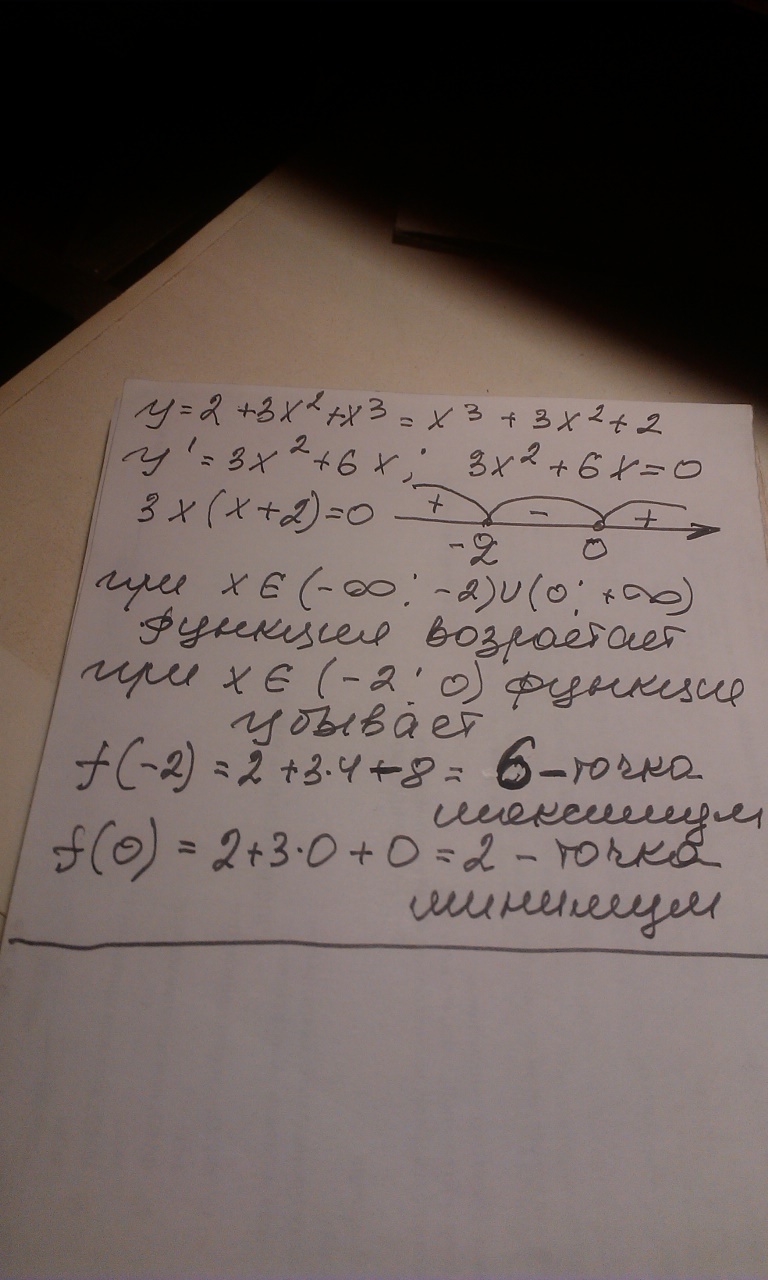 y = 2 + 3x² + x³ = x³ + 3x² + 2
y' = 3x² + 6x; 3x² + 6x = 0
3x(x+2) = 0 + - +
-2 0
при x ∈ (-∞; -2)∪(0; +∞)
функция возрастает
при x ∈ (-2; 0) функция
убывает
f(-2) = 2 + 3·4 - 8 = 6 – точка
максимум
f(0) = 2 + 3·0 + 0 = 2 – точка
минимум